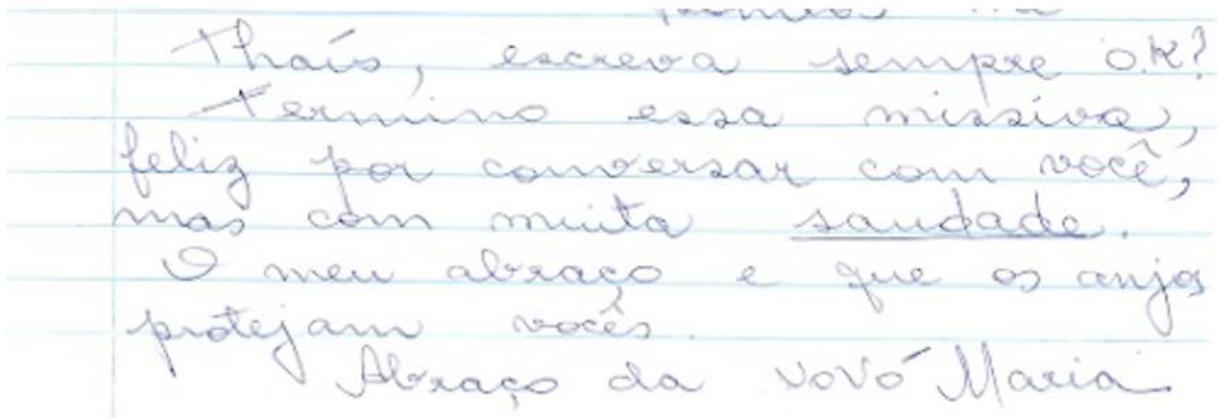 Thaís, escreva sempre O.K?
Termino essa missiva,
feliz por conversar com você,
mas com muita saudade.
O meu abraço e que os anjos
protejam vocês.
Abraço da vovó Maria